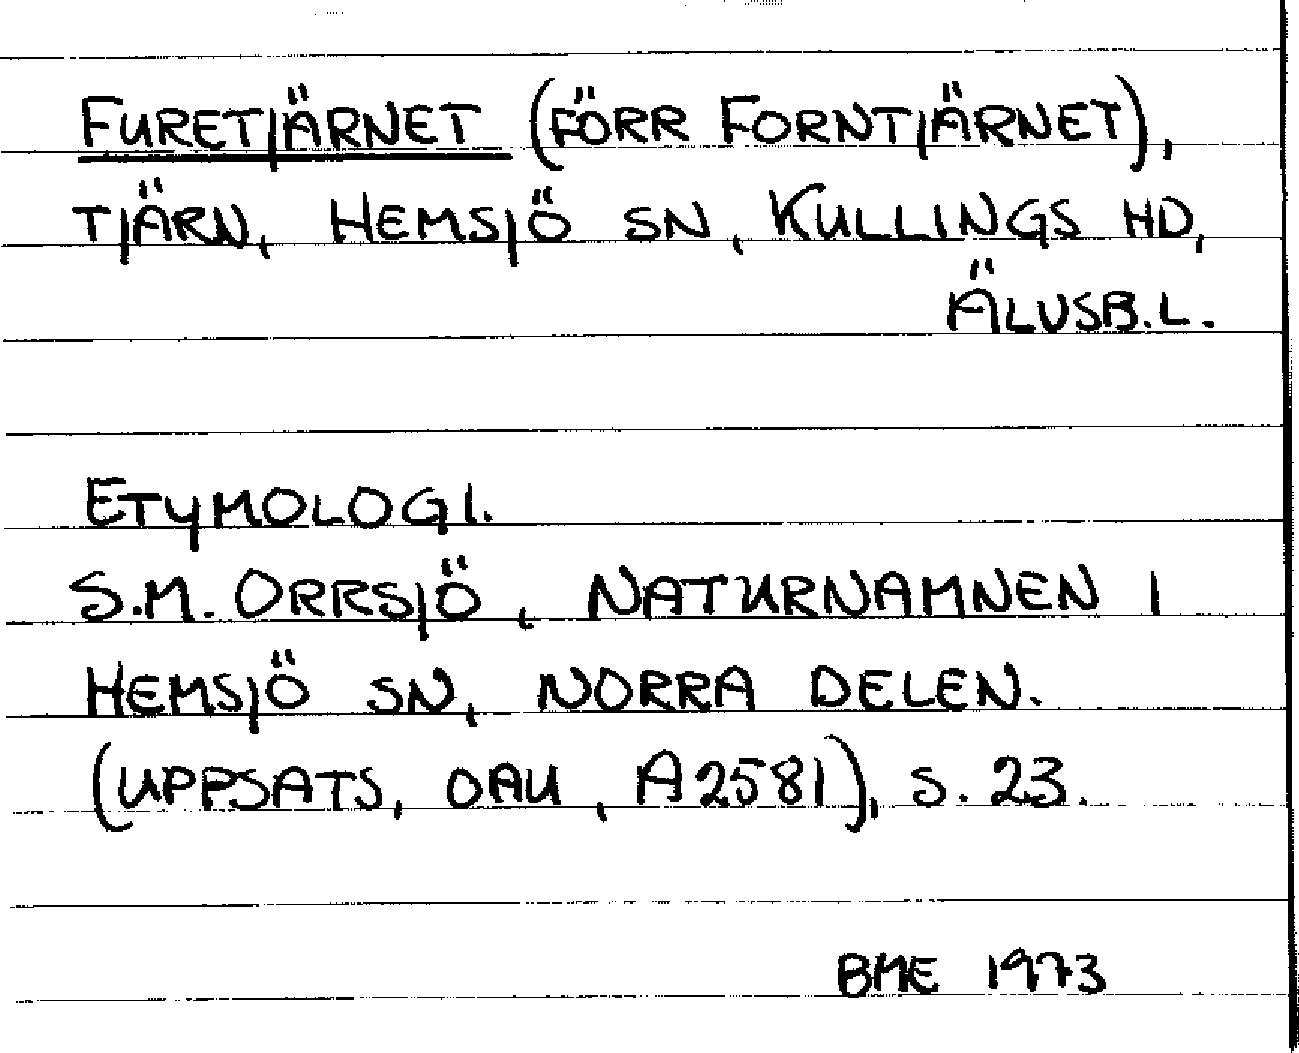 FURETJÄRNET (FÖRR FORNTJÄRNET),
TJÄRN, HEMSJÖ SN, KULLINGS HD,
ÄLVSB.L.
ETYMOLOGI.
S.M. ORRSJÖ, NATURNAMNEN I
HEMSJÖ SN, NORRA DELEN.
(UPPSATS, OAU, A2581), S. 23.
BME 1973